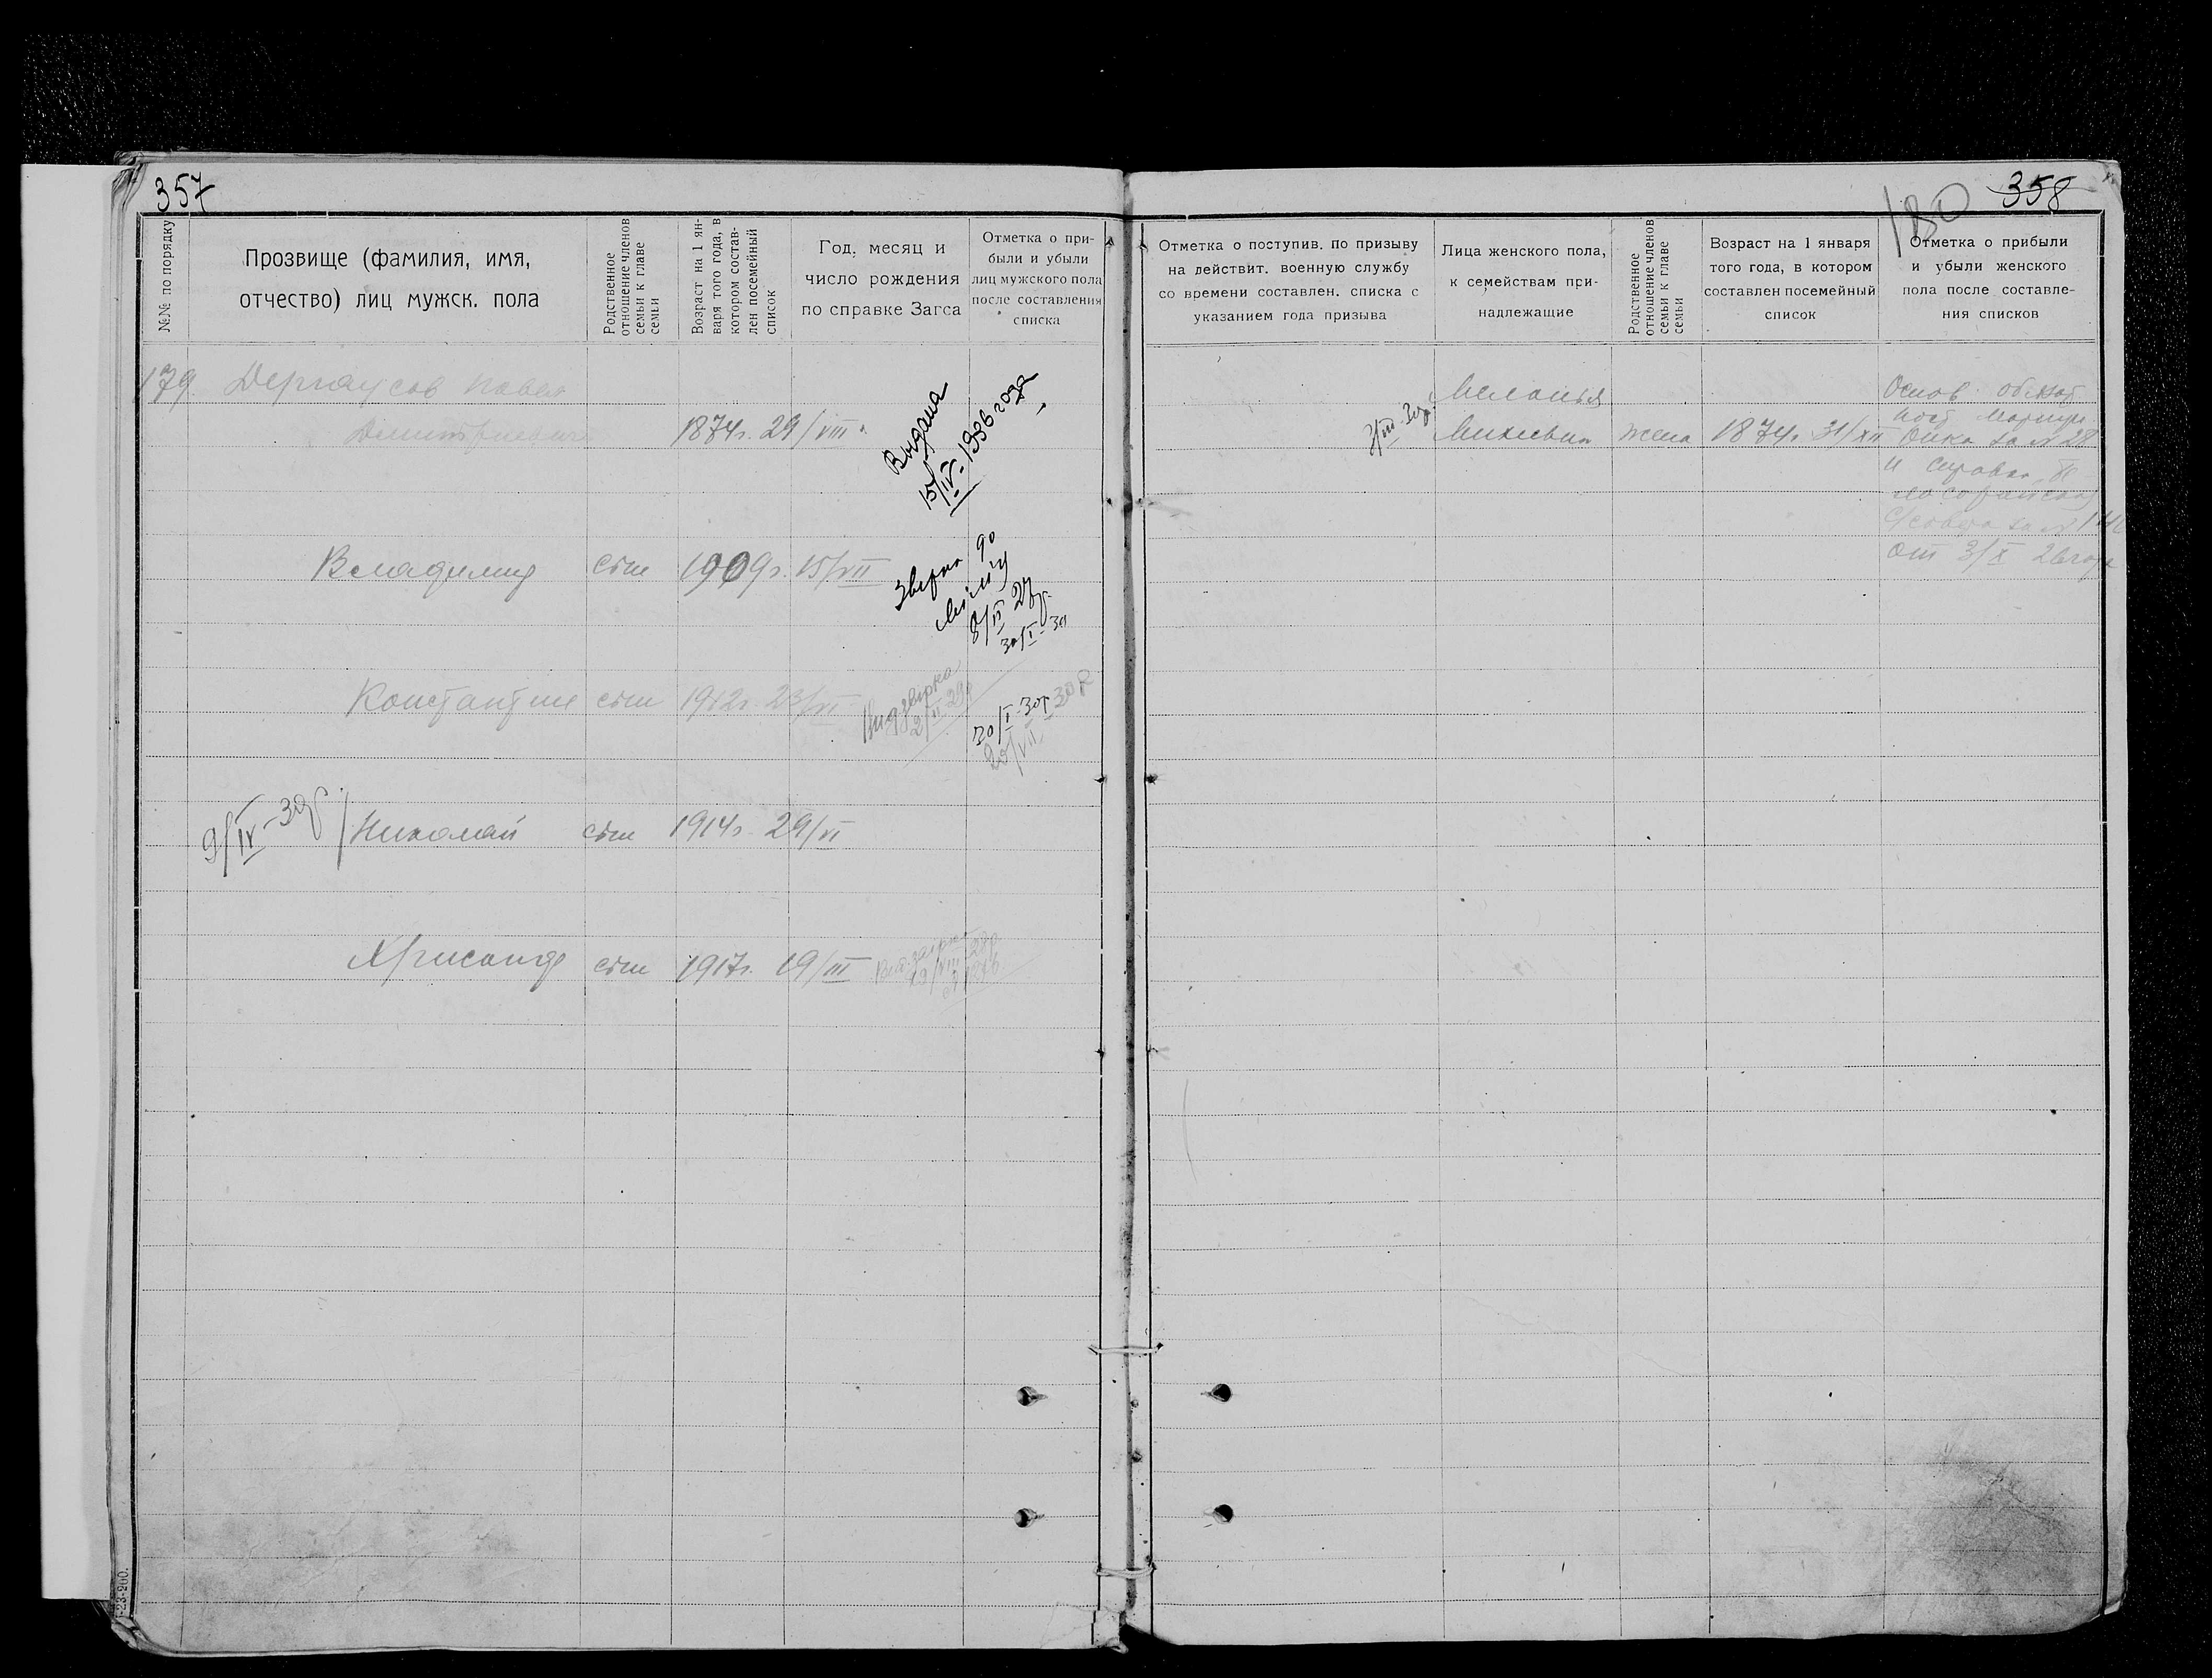 357
№№ по порядку
Прозвище (фамилия, имя,
отчество) лиц мужск. пола
Родственное
отношение членов
семьи к главе
семьи
Возраст на 1 ян-
варя того года, в
котором состав-
лен посемейный
список
Год, месяц и
число рождения
по справке Загса
Отметка о при-
были и убыли
лиц мужского пола
после составления
списка
179. Павел
1874г. 29/VIII
Выдана
15/IV-1936 года
Владимир сын 1909г. 15/VII
8/II 29г.
30/I-30
Константин сын 1912г. 23/VI
2/II 29г
30/I-30г
20/VII 30г
9/IV-30г Николай сын 1914г. 29/VI
Хрисанф сын 1917г. 19/III
19/VIII 28г
1-23-200.
180 358
Отметка о поступив. по призыву
на действит. военную службу
со времени составлен. списка с
указанием года призыва
Лица женского пола,
к семействам при-
надлежащие
Родственное
отношение членов
семьи к главе
семьи
Возраст на 1 января
того года, в котором
составлен посемейный
список
Отметка о прибыли
и убыли женского
пола после составле-
ния списков
Меланья
III-30г. жена 1874г. 31/XII
Основ.
за № 28
и справка
от 3/X 26 года